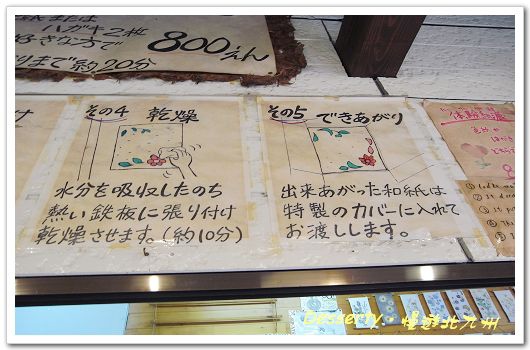 ハガキ2枚
好きな方で
800えん
りまで約20分
その4 乾燥
水分を吸収したのち
熱い鉄板に張り付け
乾燥させます。(約10分)
その5 できあがり
出来あがった和紙は
特製のカバーに入れて
お渡しします。
Desserty・慢遊北九州